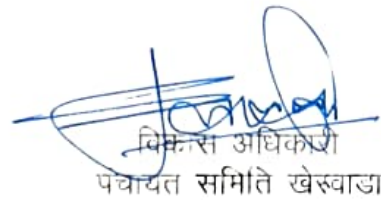 विकास अधिकारी
पंचायत समिति खेरवाडा